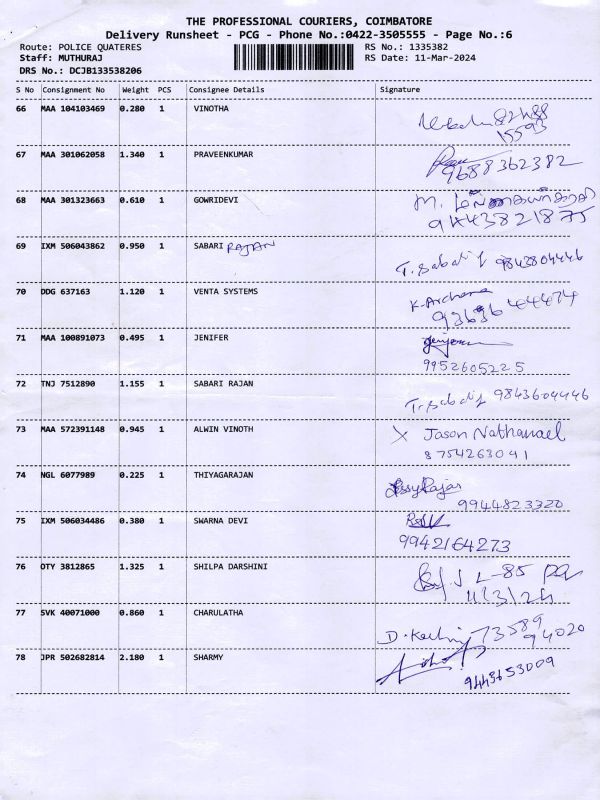 THE PROFESSIONAL COURIERS, COIMBATORE
Delivery Runsheet - PCG - Phone No.:0422-3505555 - Page No.:6
Route: POLICE QUATERES RS No.: 1335382
Staff: MUTHURAJ RS Date: 11-Mar-2024
DRS No.: DCJB133538206
S No Consignment No Weight PCS Consignee Details Signature
66 MAA 104103469 0.280 1 VINOTHA
15593
67 MAA 301062058 1.340 1 PRAVEENKUMAR
9688362382
68 MAA 301323663 0.610 1 GOWRIDEVI M.
9443821875
69 IXM 506043862 0.950 1 SABARI RAJAN
9843804446
70 DDG 637163 1.120 1 VENTA SYSTEMS K. Archana
71 MAA 100891073 0.495 1 JENIFER
9952605225
72 TNJ 7512890 1.155 1 SABARI RAJAN 9843604446
73 MAA 572391148 0.945 1 ALWIN VINOTH X Jason Nathanael
8754263041
74 NGL 6077989 0.225 1 THIYAGARAJAN
9944823320
75 IXM 506034486 0.380 1 SWARNA DEVI
9942164273
76 OTY 3812865 1.325 1 SHILPA DARSHINI L-85
11/3/24
77 SVK 40071000 0.860 1 CHARULATHA D. 73589
94020
78 JPR 502682814 2.180 1 SHARMY
9443653009